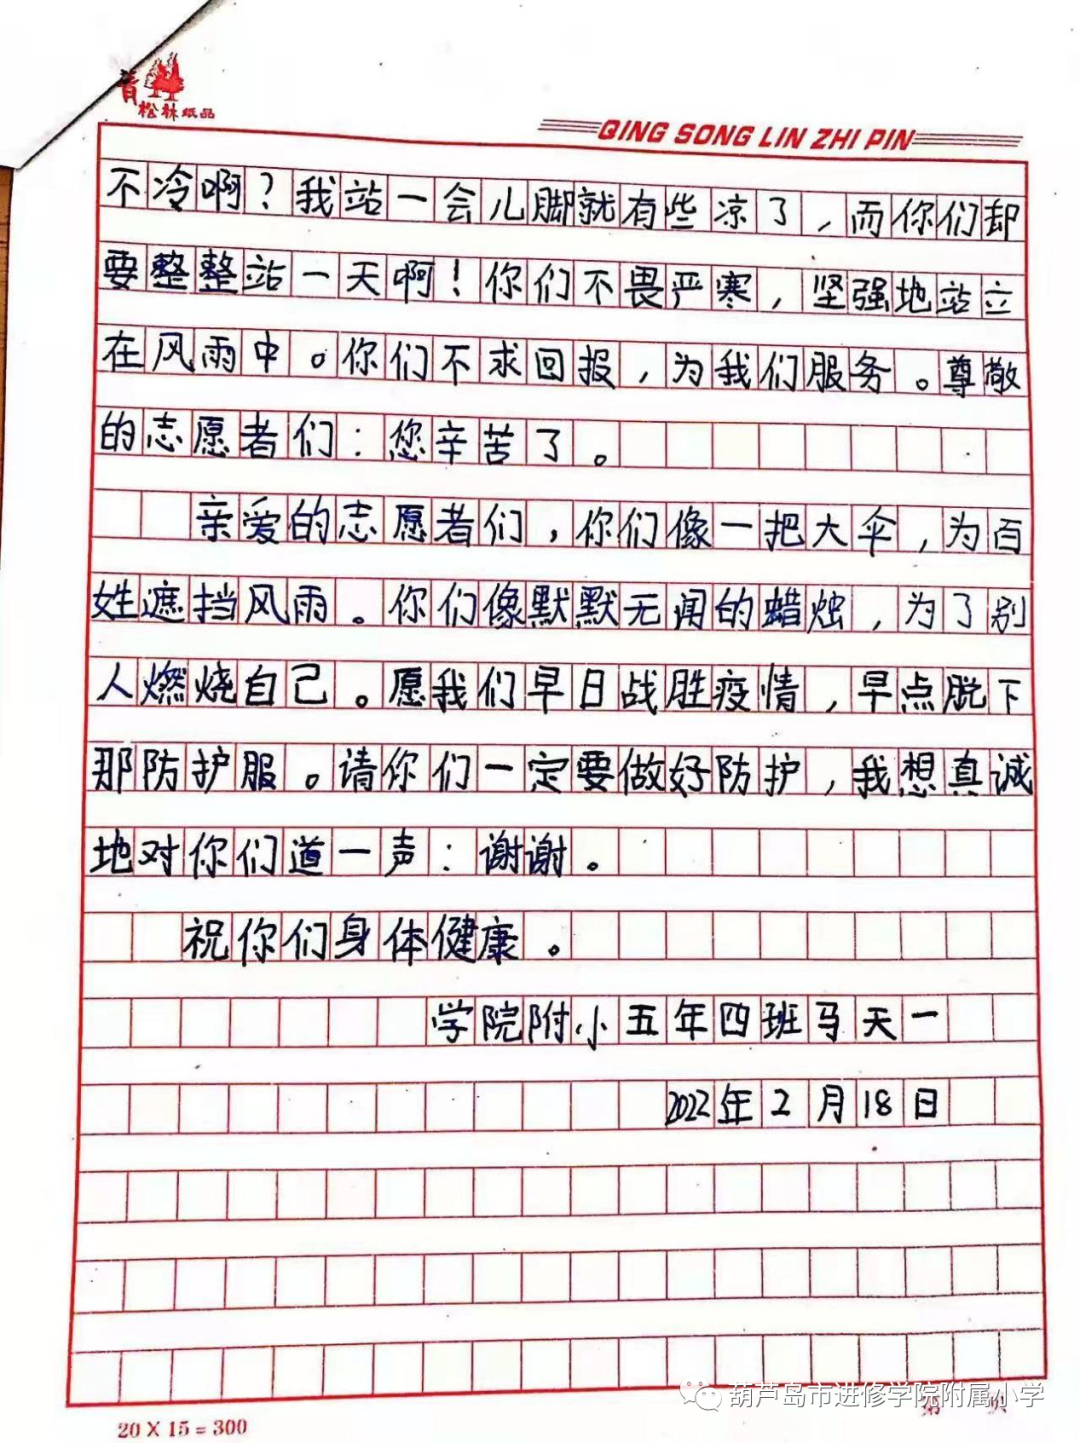 青松林纸品
QING SONG LIN ZHI PIN
不冷啊？我站一会儿脚就有些凉了，而你们却
要整整站一天啊！你们不畏严寒，坚强地站立
在风雨中。你们不求回报，为我们服务。尊敬
的志愿者们：您辛苦了。
亲爱的志愿者们，你们像一把大伞，为百
姓遮挡风雨。你们像默默无闻的蜡烛，为了别
人燃烧自己。愿我们早日战胜疫情，早点脱下
那防护服。请你们一定要做好防护，我想真诚
地对你们道一声：谢谢。
祝你们身体健康。
学院附小五年四班马天一
2022年2月18日
葫芦岛市进修学院附属小学
20 X 15 = 300